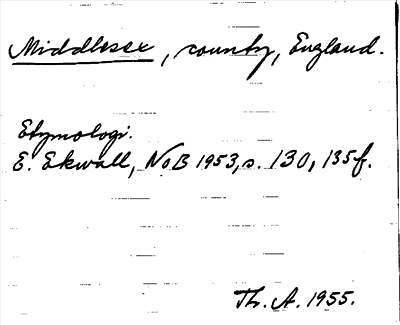 Middlesex, county, England.
Etymologi.
E. Ekwall, NoB 1953, s. 130, 135f.
Th. A. 1955.